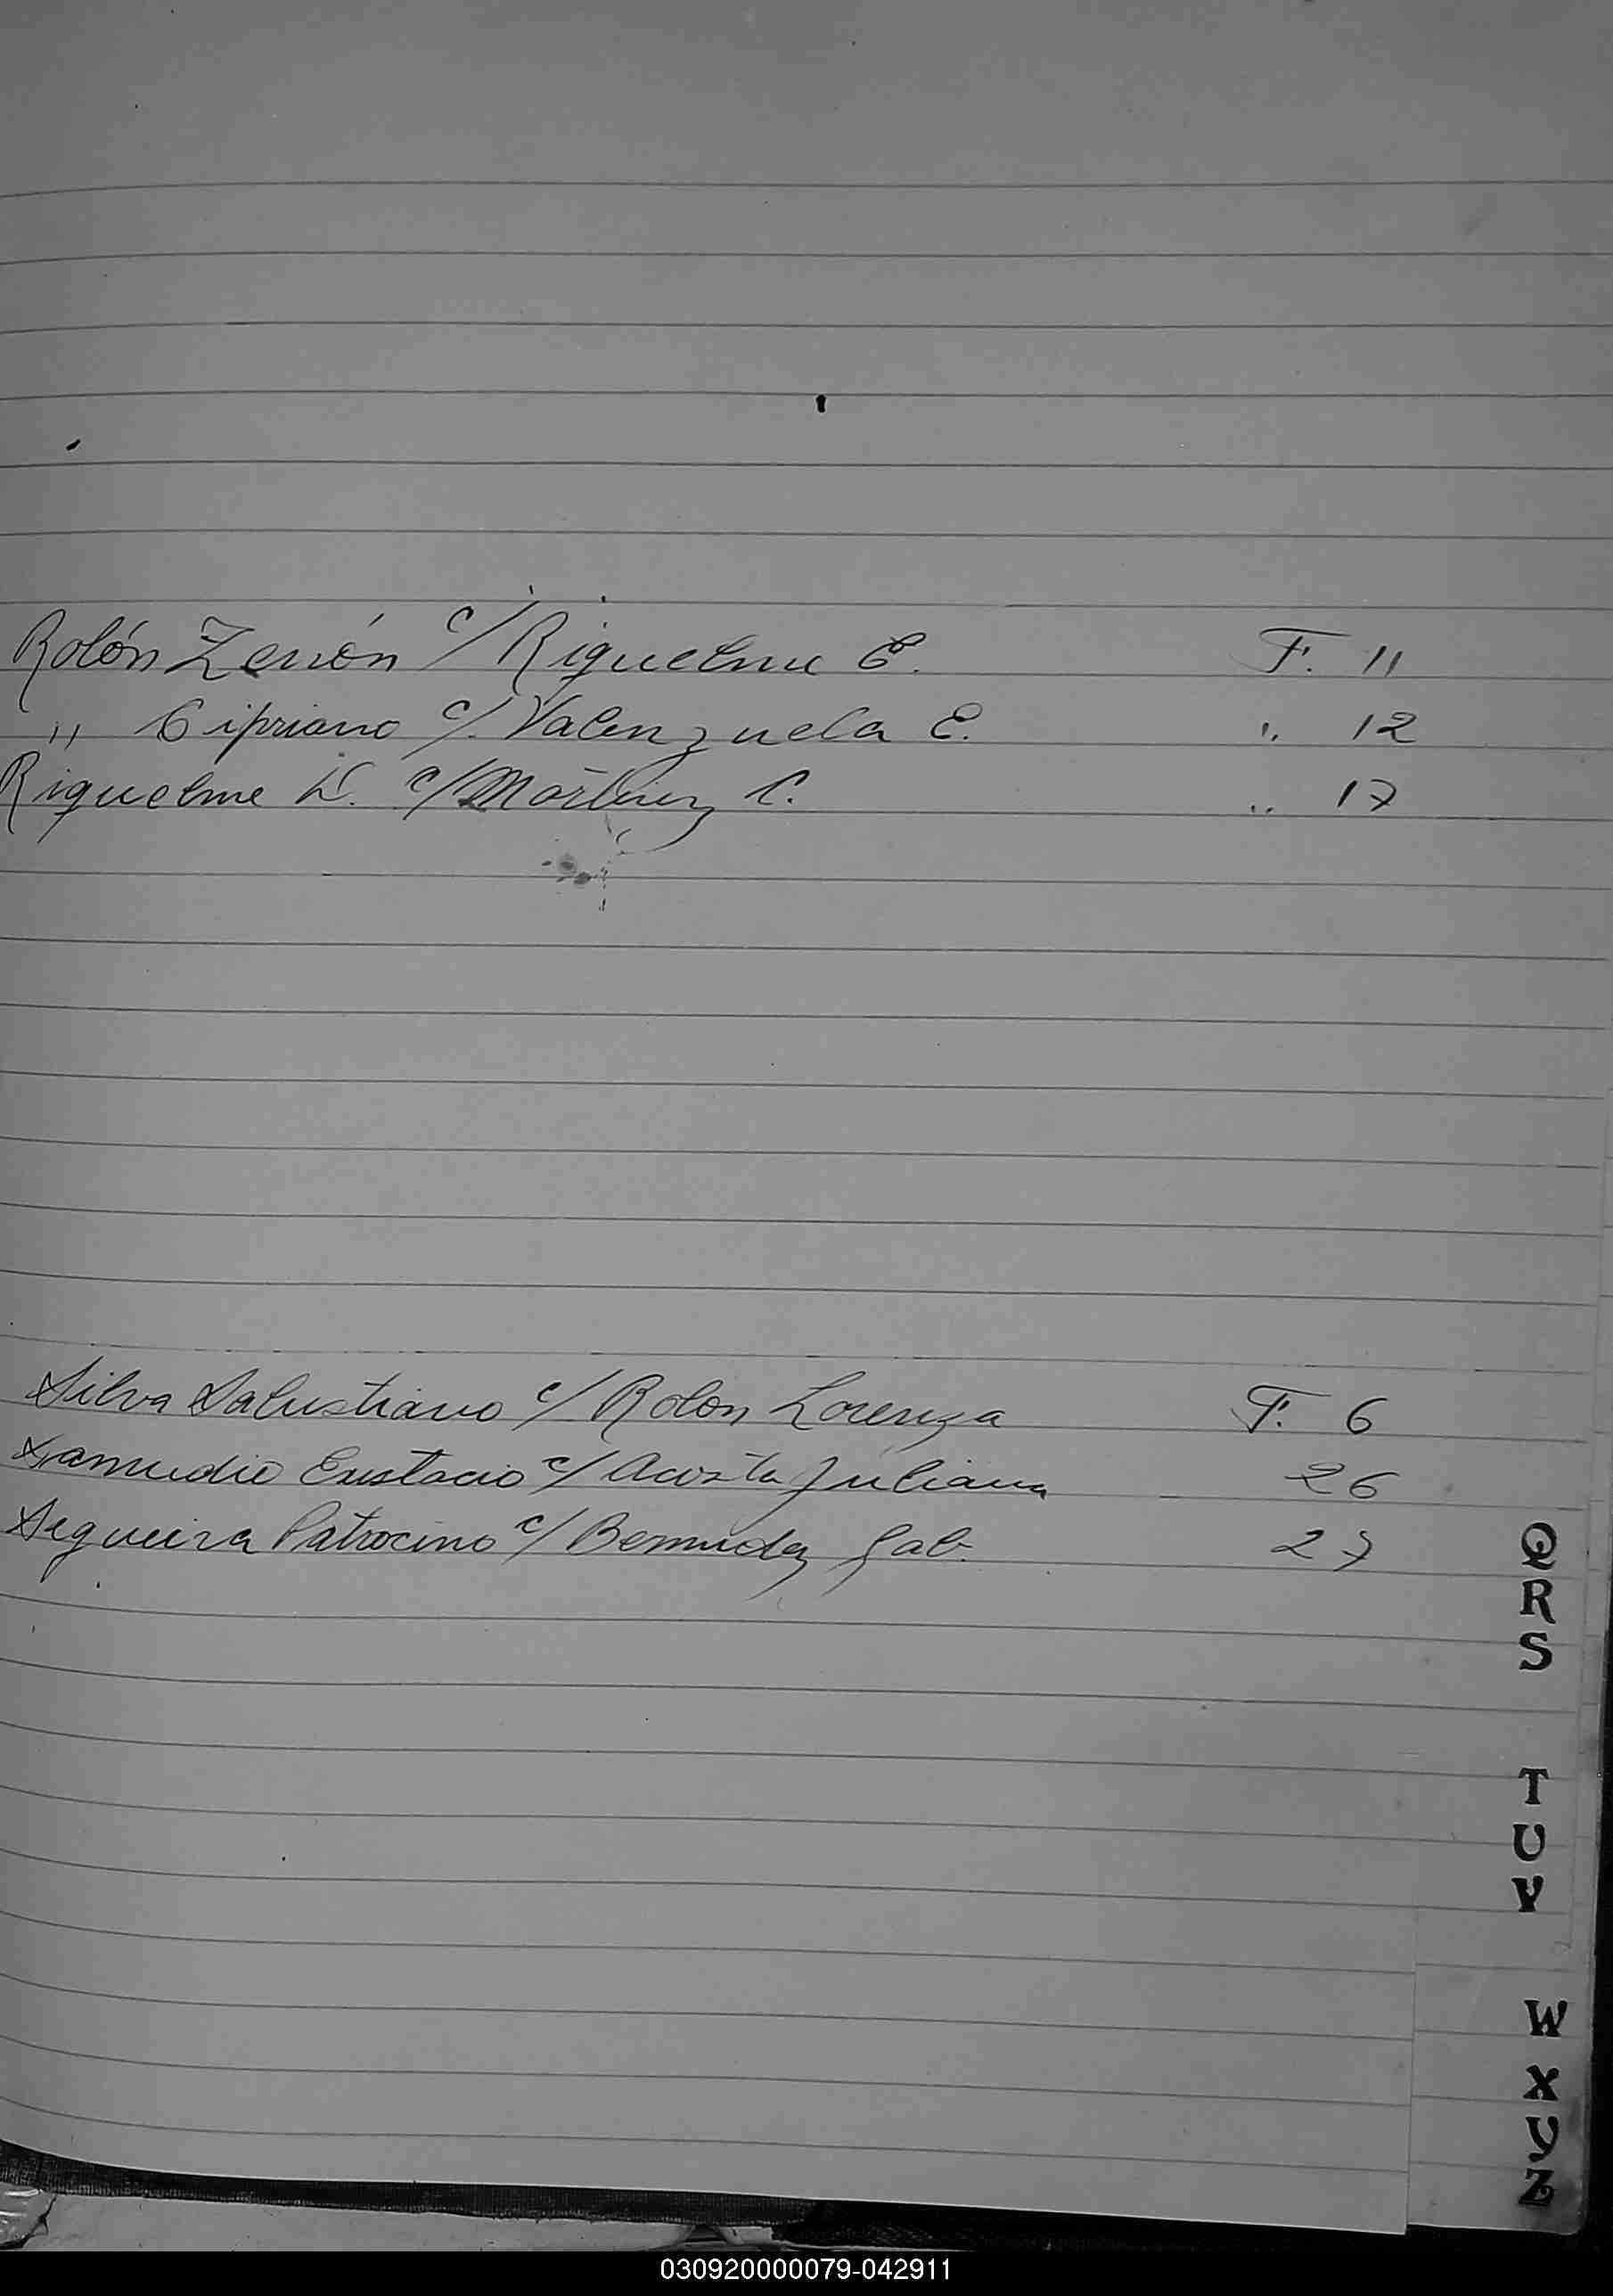 Rolón Zenón c/ Riquelme E. F. 11
" Cipriano c/. Valenzuela E. " 12
Riquelme D. c/ Martinez C. " 17
Silva Salustiano c/ Rolon Lorenza F. 6
Samudio Eustacio c/ Acosta Juliana 26
Segueira Patrocino c/ Bermudez Gab. 27
Q
R
S
T
U
V
W
X
Y
Z
030920000079-042911